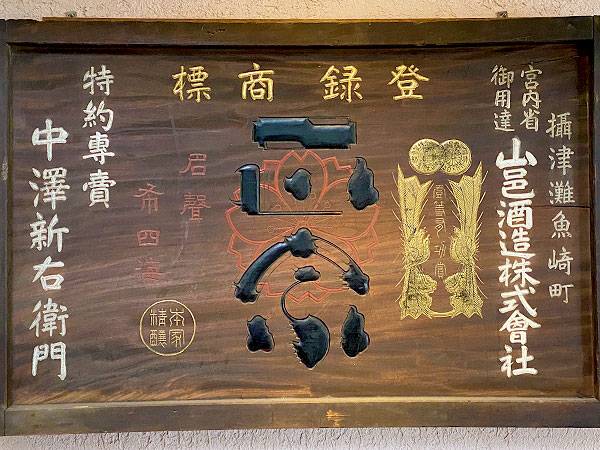 登録商標
攝津灘魚崎町
宮内省
御用達
山邑酒造株式會社
正宗
名聲
布四海
本家
精釀
特約專賣
中澤新右衛門